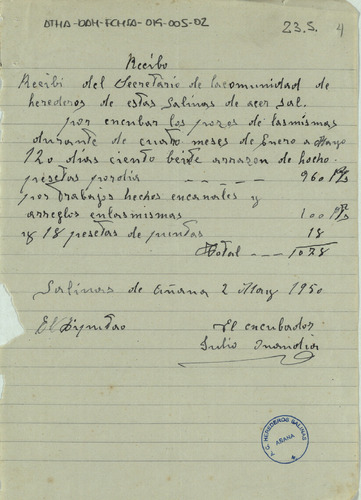 ATHA-DAH-FCHSA-019-005-02
23.5. 4
Recibo
Recibi del Secretario de lacomunidad de
herederos de estas Salinas de acer sal.
por encubar los pozos de lasmismas
durante de cuatro meses de Enero a Mayo
120 dias ciento beinte arrazon de hocho
pesetas pordia - - - - - 960 Pts
por trabajos hechos encanales y
arreglos enlasmismas 100 Pts
y 18 pesetas de puntas 18
Total - - - 1078
Salinas de Añana 2 May 1950
El encubador
Julio
C. G. HEREDEROS SALINAS
AÑANA